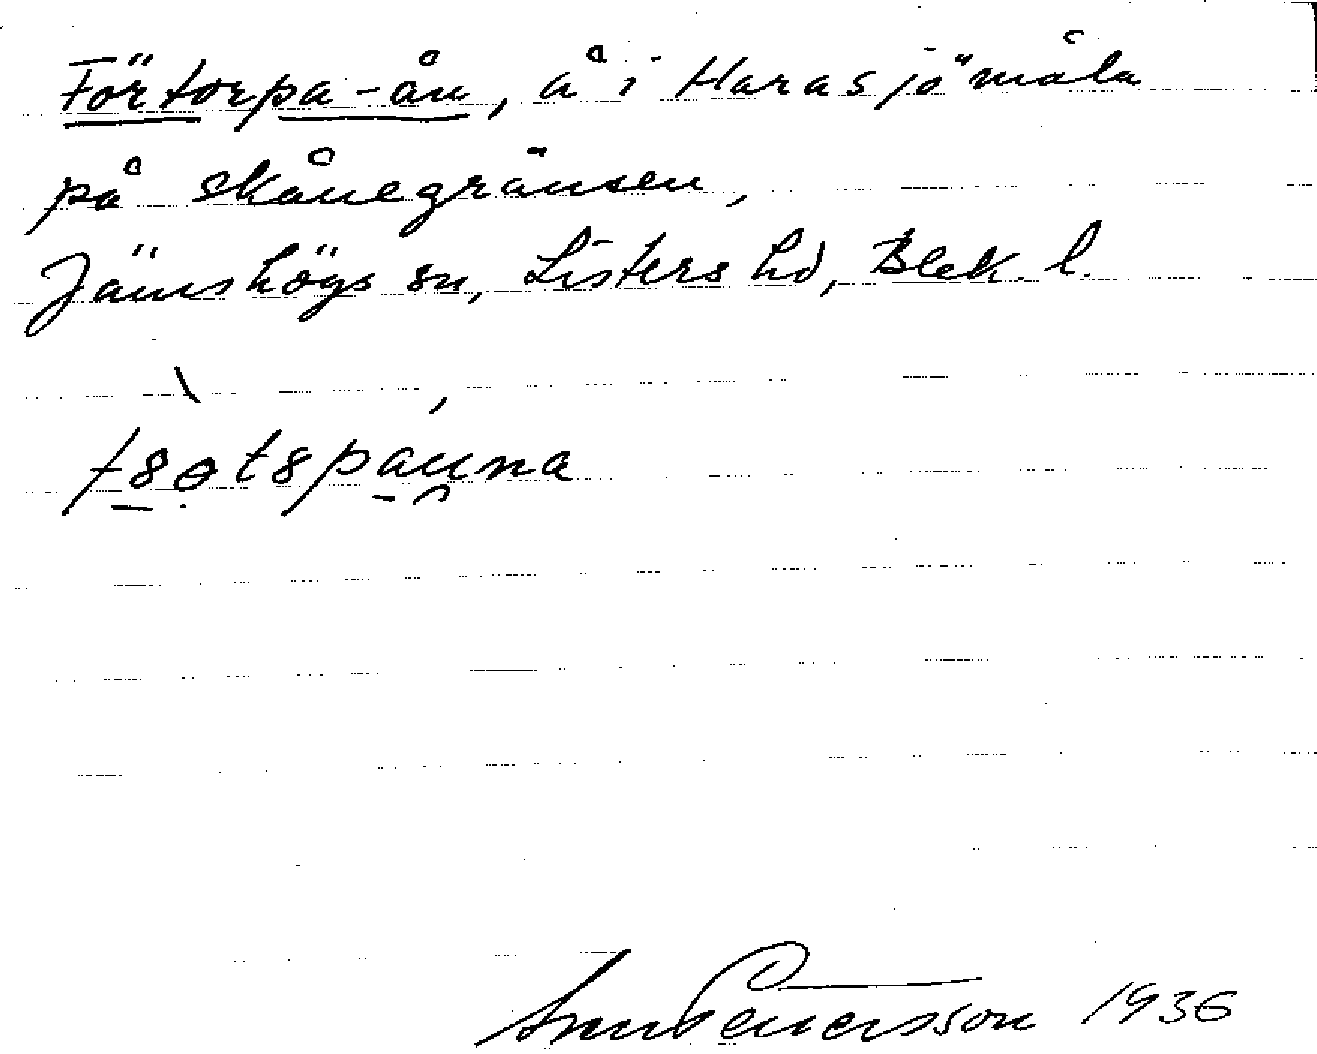 Förtorpa-ån, å i Harasjömåla
på Skånegränsen,
Jämshögs sn, Listers hd, Blek. l.
1936